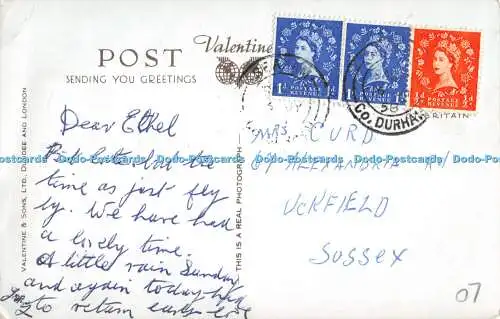 POST
Valentine
SENDING YOU GREETINGS
VALENTINE & SONS, LTD., DUNDEE AND LONDON
THIS IS A REAL PHOTOGRAPH
1D POSTAGE REVENUE 1D
1D POSTAGE REVENUE 1D
½D POSTAGE REVENUE ½D
CO. DURHAM
BRITAIN
Dear Ethel
the
time as just fly
by. We have had
a lovely time.
A little rain Sunday
and again today
to return early
MRS CURD
ALEXANDRA
UCKFIELD
SUSSEX
07
Postcards Dodo-Postcards Dodo-Postcards Dodo-Postcards Dodo-Postcards